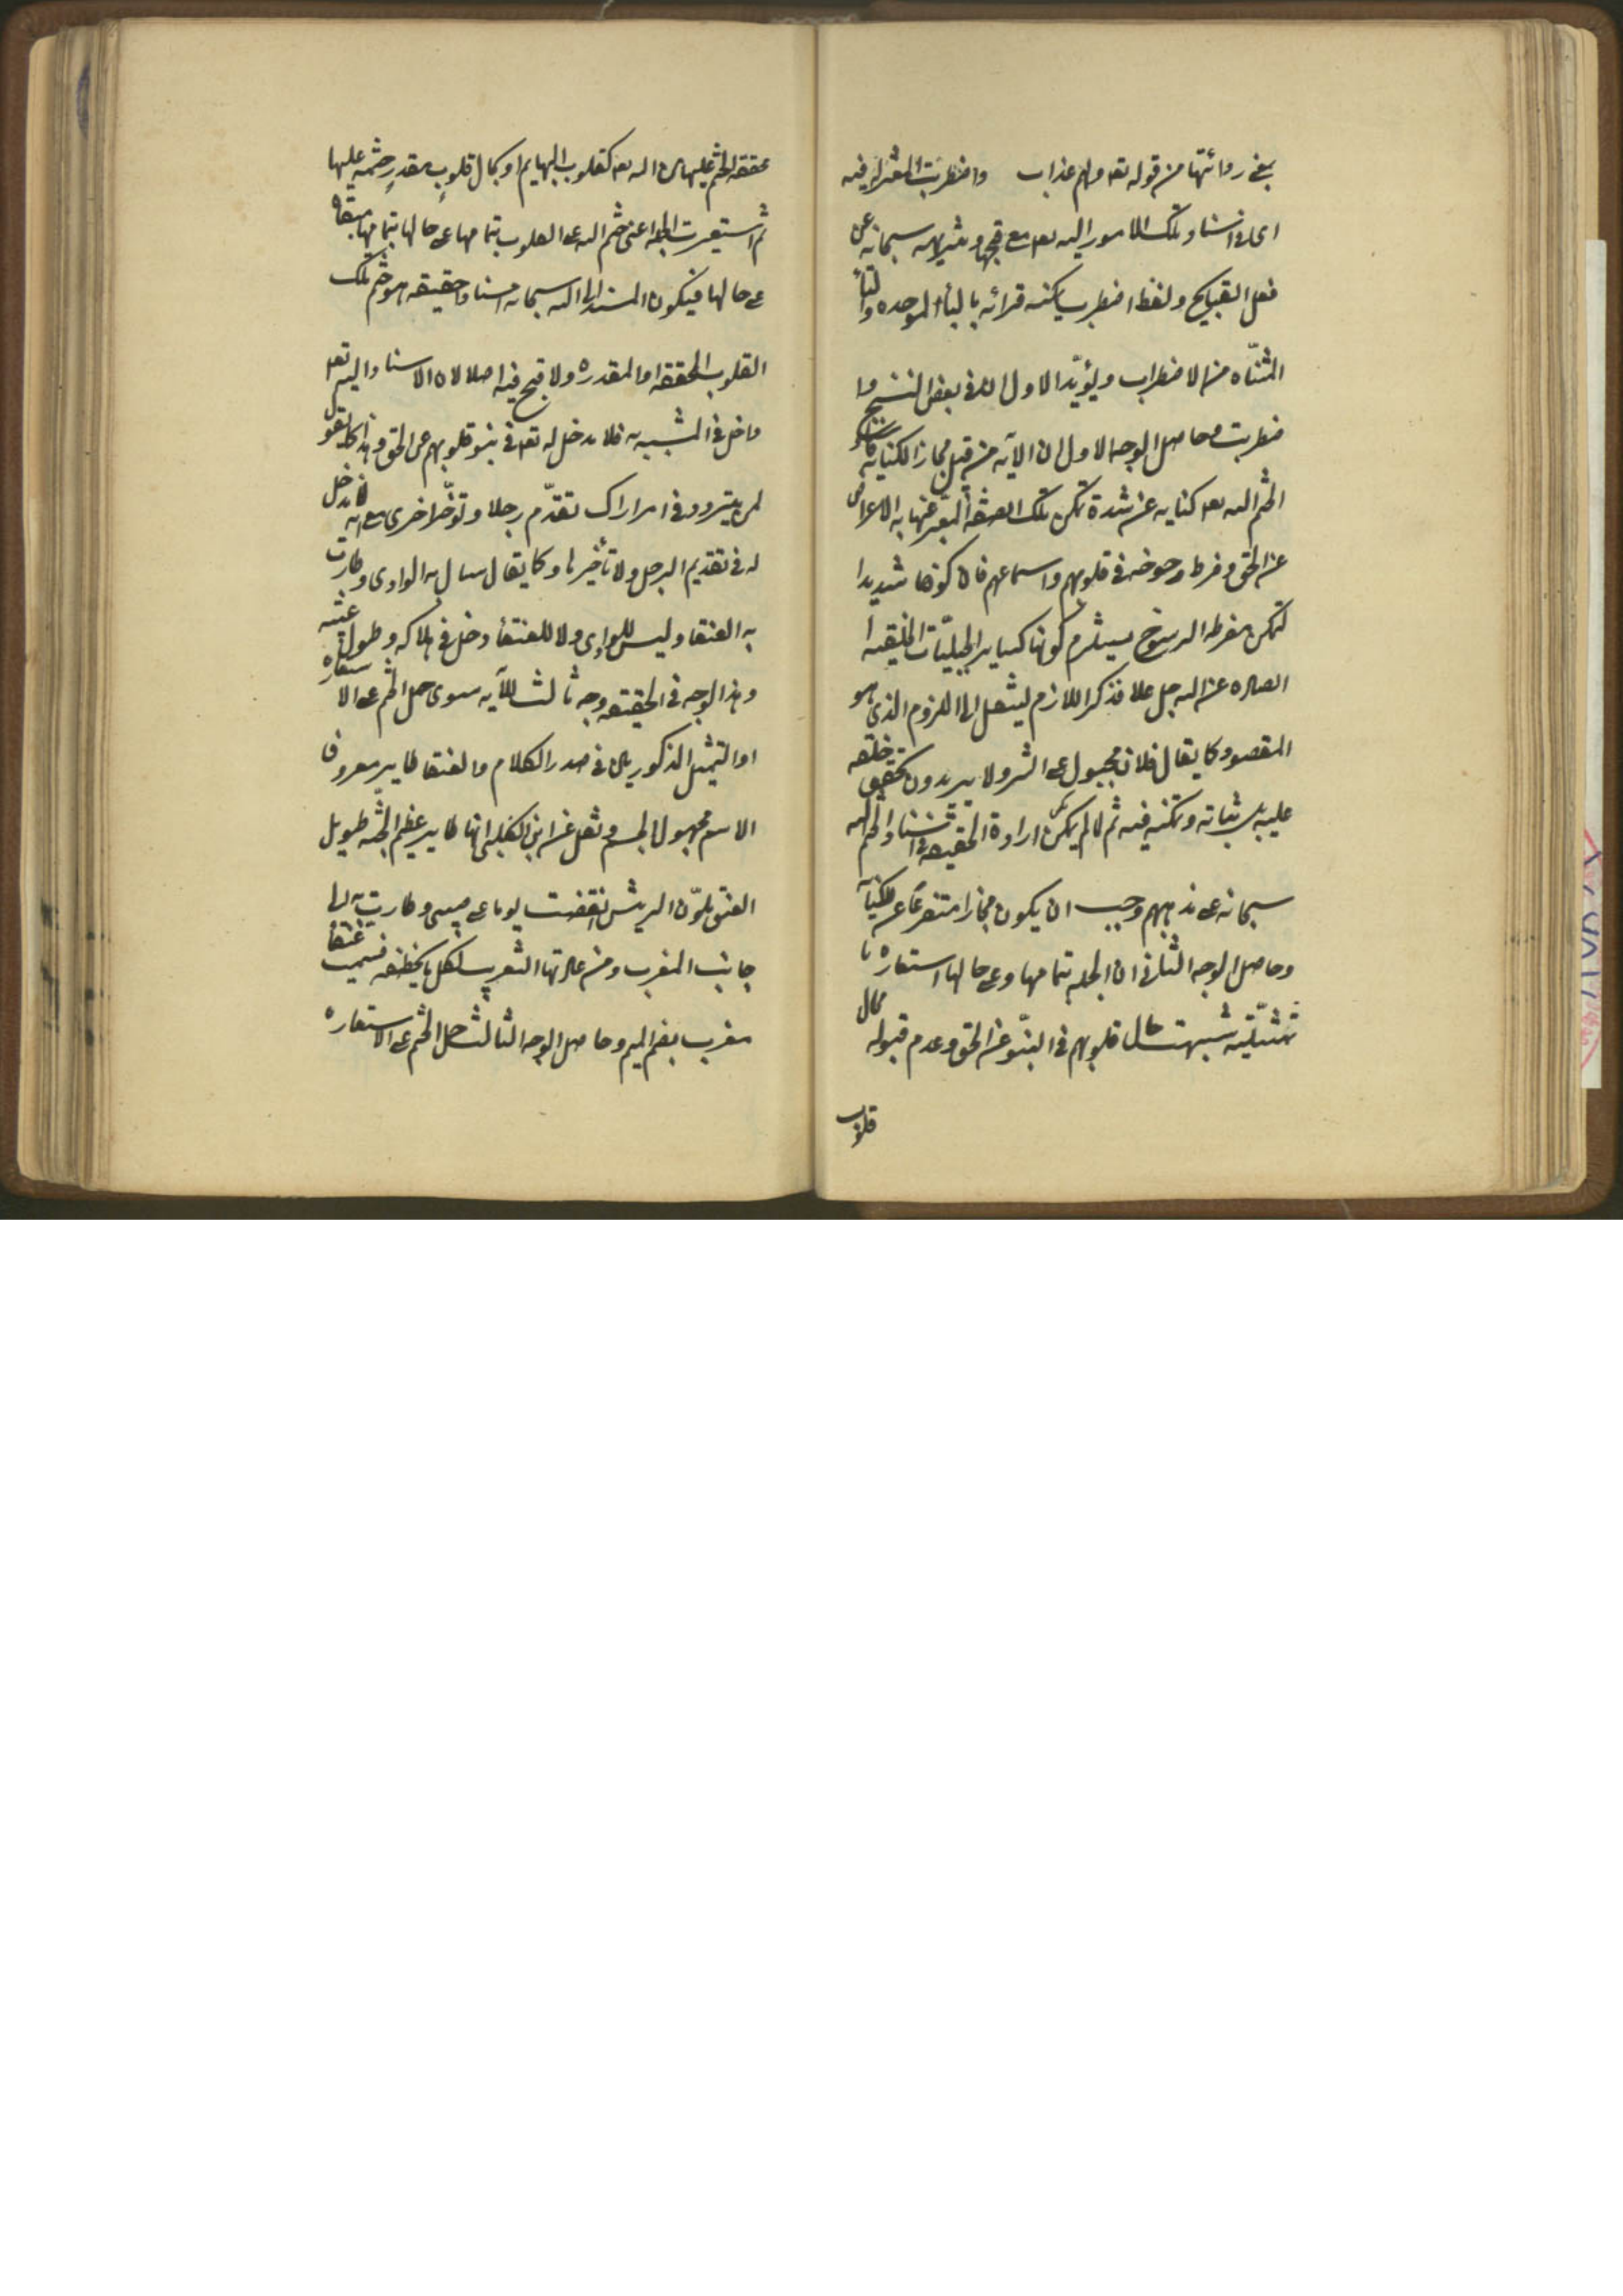 بقى روائتها من قوله تعه ولهم عذاب واضطربت المعتزله فيه
اى فى اسناد تلك الامور اليه تعه مع قبحها وتنزيهه سبحانه عن
فعل القبايح ولفظ اضطرب يمكنه قرائه بالباء الموحده والتاء
المثنّاه من الاضطراب ويؤيّد الاول ان فى بعض النسخ وا
ضطربت وحاصل الوجه الاول ان الآيه من قبيل مجاز الكنايه
الختم اليه تعه كنايه عن شدة تمكن تلك الصفة المعبّر عنها بالاعراض
عن الحق وفرط رسوخه فى قلوبهم واسماعهم فان كونها شديدا
لتمكن مفرطه الرسوخ يستلزم كونها كساير الجبليّات الخلقيه
الصادره عن اليه جل علا فذكر اللازم لينتقل الى الملزوم الذى هو
المقصود كما يقال فلان مجبول على الشر ولا يريدون تحقيق خلقه
عليه بل ثباته وتمكنه فيه ثم لما لم يمكن ارادة الحقيقه فى اسناد الختم اليه
سبحانه على مذهبهم وجب ان يكون مجازا متفرعا عن الكناية
وحاصل الوجه الثانى ان الجمله بتمامها وعلى حالها استعاره
تمثيليّه شبهت حال قلوبهم فى النبوّ عن الحق وعدم قبوله بحال
قلوب
محققه الختم عليها من اله تعه كقلوب البهايم او بحال قلوب مقدر ختمه عليها
ثم استعيرت الجمله اعنى ختم اله على القلوب بتمامها على حالها بتمامها مبقاه
على حالها فيكون المسند الى اله سبحانه اسنادا حقيقه هو ختم تلك
القلوب المحققه او المقدره ولا قبح فيه اصلا لان الاسناد اليه تعه
داخل فى المشبه به فلا مدخل له تعه فى نبو قلوبهم عن الحق وهذا كما تقول
لمن يتردد فى امر اراك تقدّم رجلا وتؤخّر اخرى مع انه لا مدخل
له فى تقديم الرجل ولا تأخيرها وكما يقال سال به الوادى وطارت
به العنقا وليس للوادى ولا للعنقا دخل فى هلاكه وطول غيبته
وهذا الوجه فى الحقيقه وجه ثالث للآيه سوى حمل الختم على الاستعاره
او التمثيل المذكورين فى صدر الكلام والعنقا طاير معروف
الاسم مجهول الجسم ونقل عن ابن الكلبى انها طاير عظيم الجثه طويل
العنق ملوّن الريش انقضت يوما على صبى وطارت به الى
جانب المغرب ومن عادتها التغريب لكل ما يخطفه فسميت عنقا
مغرب بضم الميم وحاصل الوجه الثالث حمل الختم على الاستعاره